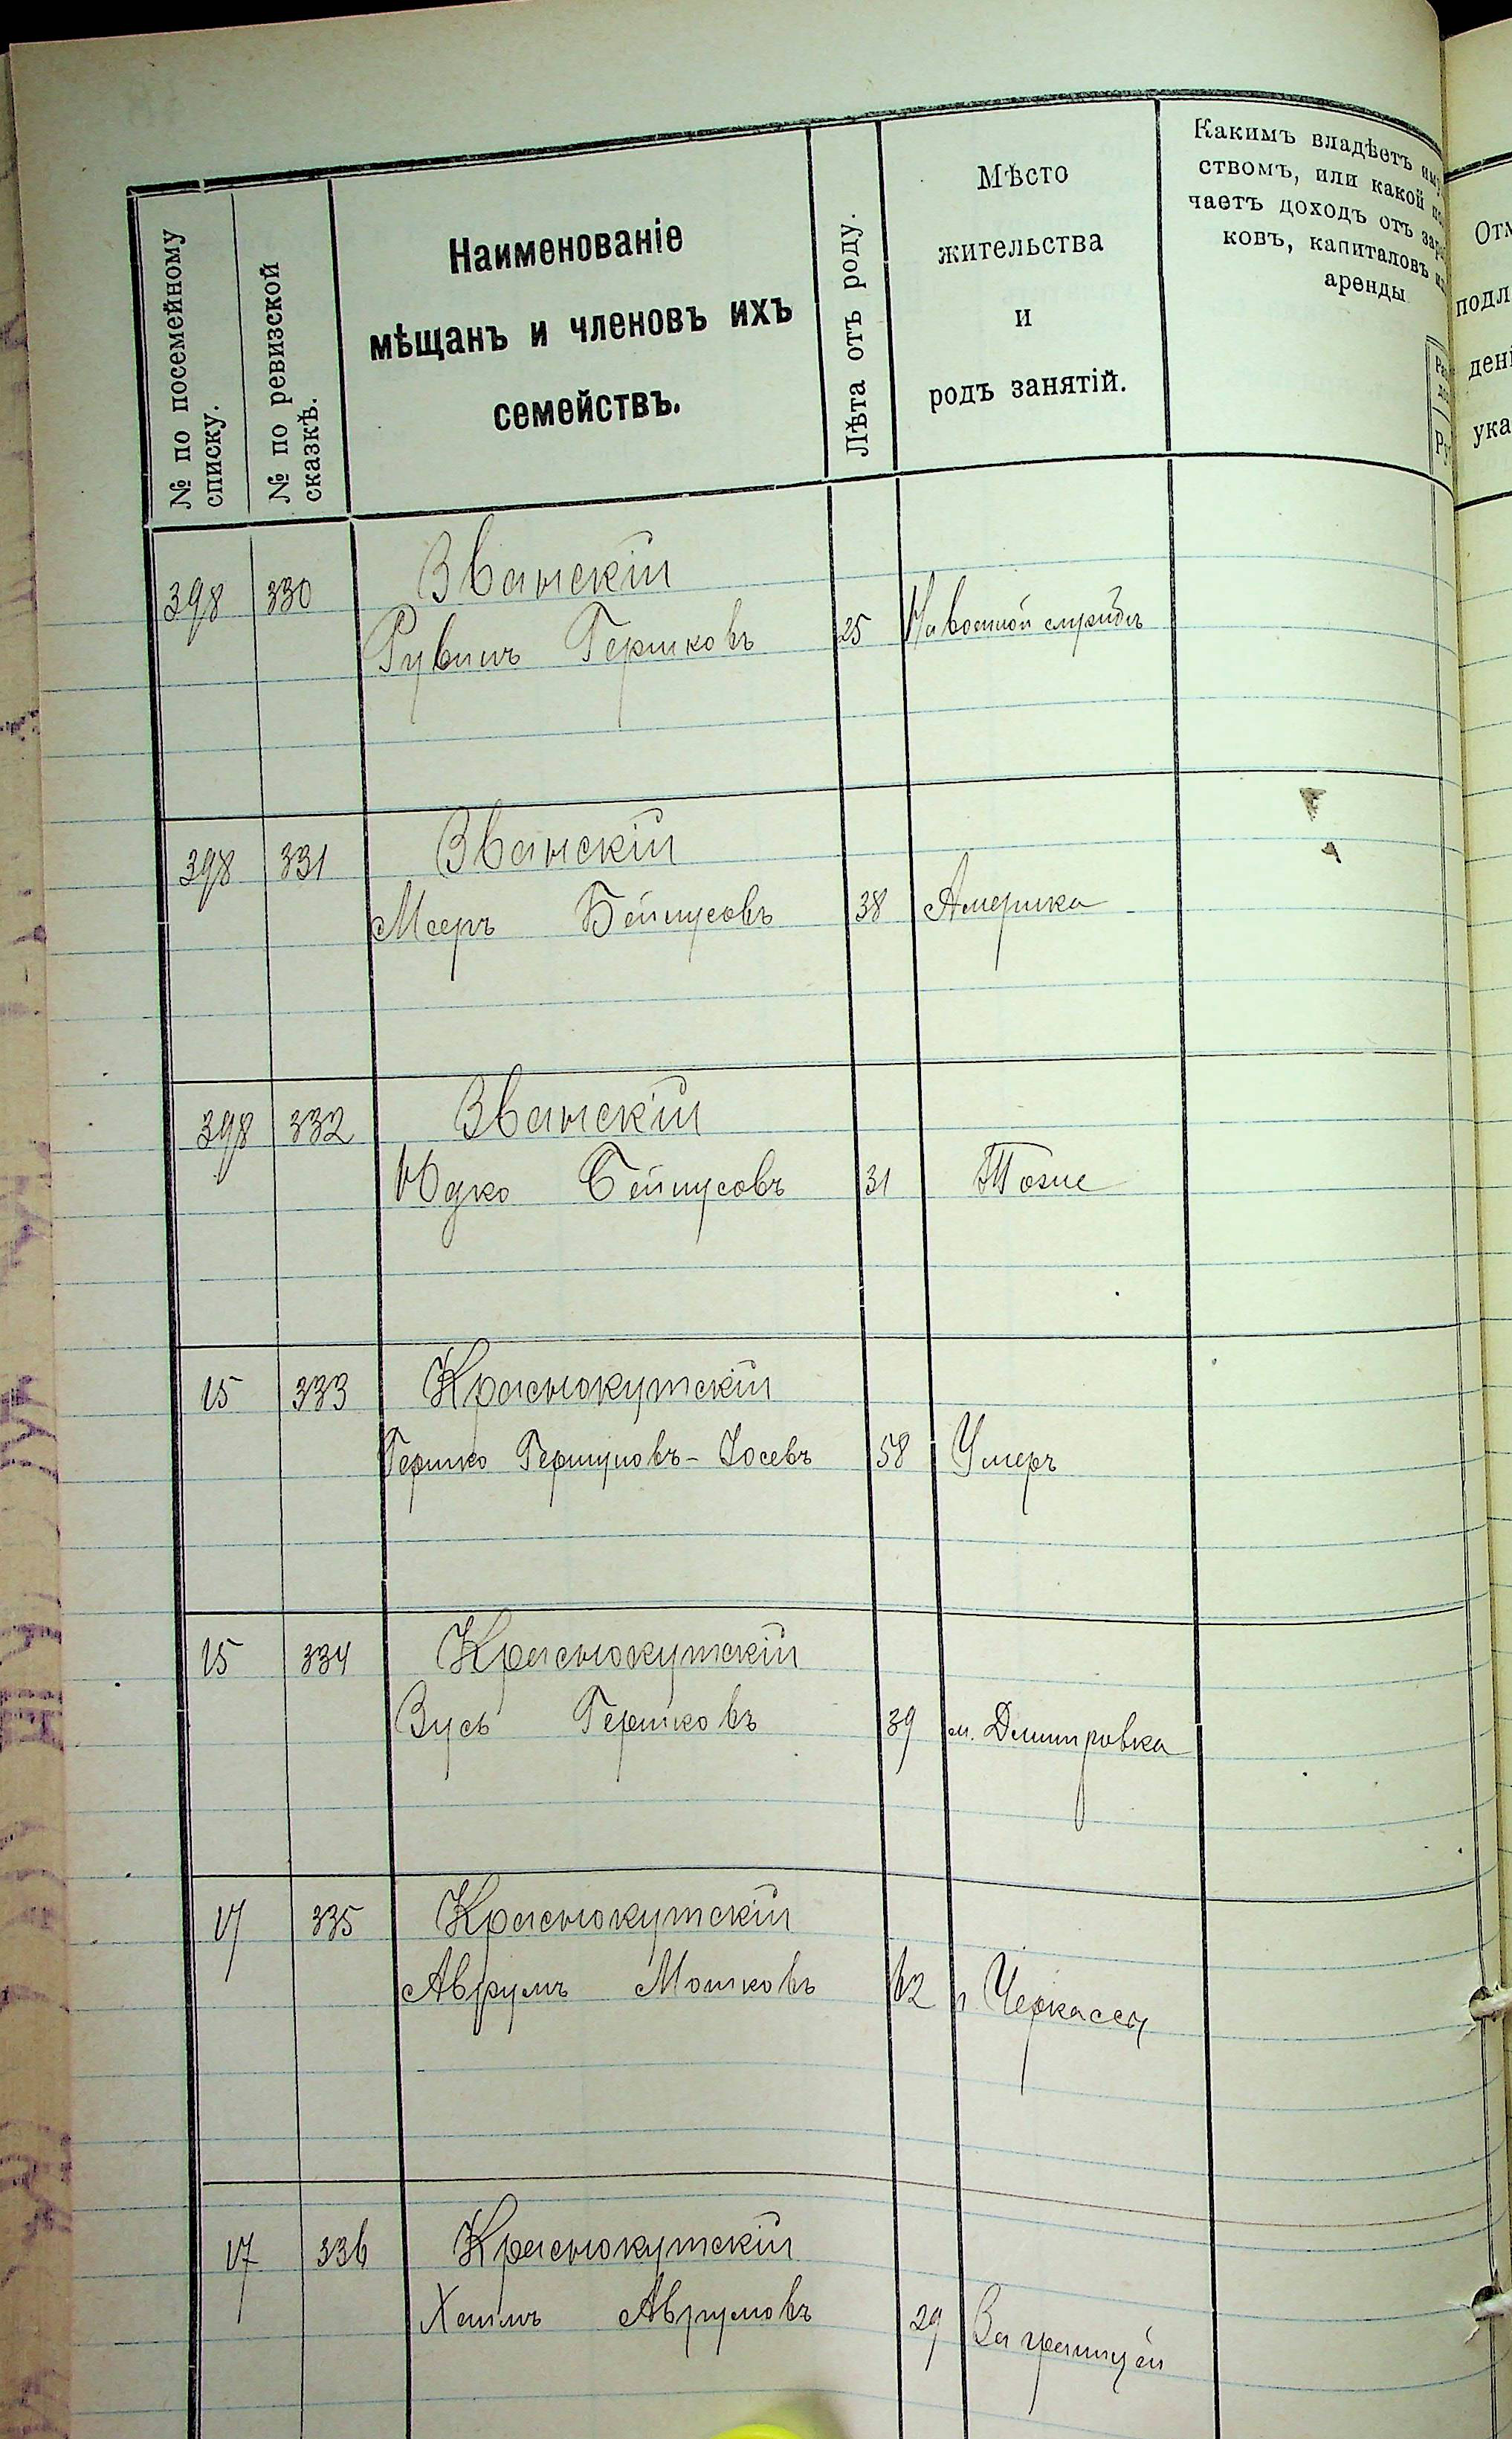 № по посемейному
списку.
№ по ревизской
сказкѣ.
Наименованіе
мѣщанъ и членовъ ихъ
семействъ.
Лѣта отъ роду.
Мѣсто
жительства
и
родъ занятій.
Какимъ владѣетъ
ствомъ, или какой
чаетъ доходъ отъ
ковъ, капиталовъ
аренды
398 330 Званскій
Рувинъ Гершковъ 25 На военной службѣ
398 331 Званскій
Мееръ Бейнусовъ 38 Америка
398 332 Званскій
Юдко Бейнусовъ 31 Тоже
15 333 Краснокутскій
Гершко Гершуновъ-Іосевъ 58 Умеръ
15 334 Краснокутскій
Зусь Гершковъ 39 м. Дмитровка
17 335 Краснокутскій
Аврумъ Мошковъ 62 г. Черкассы
17 336 Краснокутскій
Хаимъ Аврумовъ 29 За границей